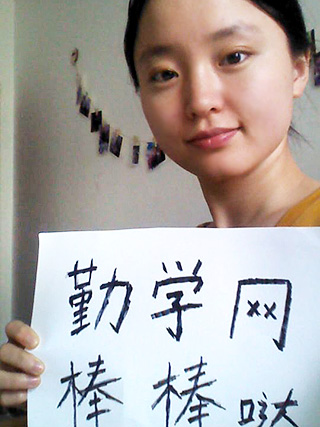 勤学网
棒棒哒